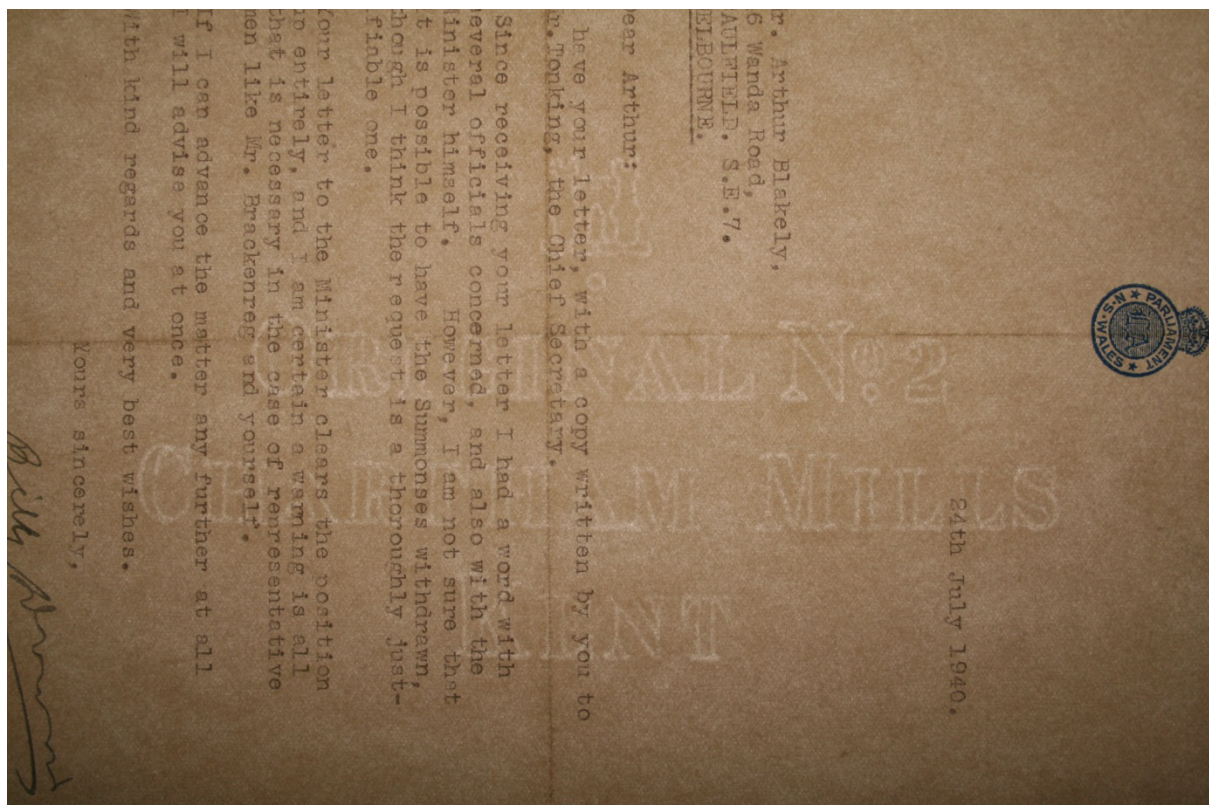 PARLIAMENT
N·S·WALES
24th July 1940.
r. Arthur Blakely,
6 Wanda Road,
AULFIELD. S.E.7.
ELBOURNE.
ear Arthur:
have your letter, with a copy written by you to
r. Tonking, the Chief Secretary.
Since receiving your letter I had a word with
everal officials concerned, and also with the
inister himself. However, I am not sure that
t is possible to have the Summonses withdrawn,
hough I think the request is a thoroughly just-
fiable one.
Your letter to the Minister clears the position
up entirely, and I am certain a warning is all
that is necessary in the case of representative
men like Mr. Brackenreg and yourself.
If I can advance the matter any further at all
I will advise you at once.
With kind regards and very best wishes.
Yours sincerely,
Billy
ORIGINAL No. 2
CHARTHAM MILLS
KENT